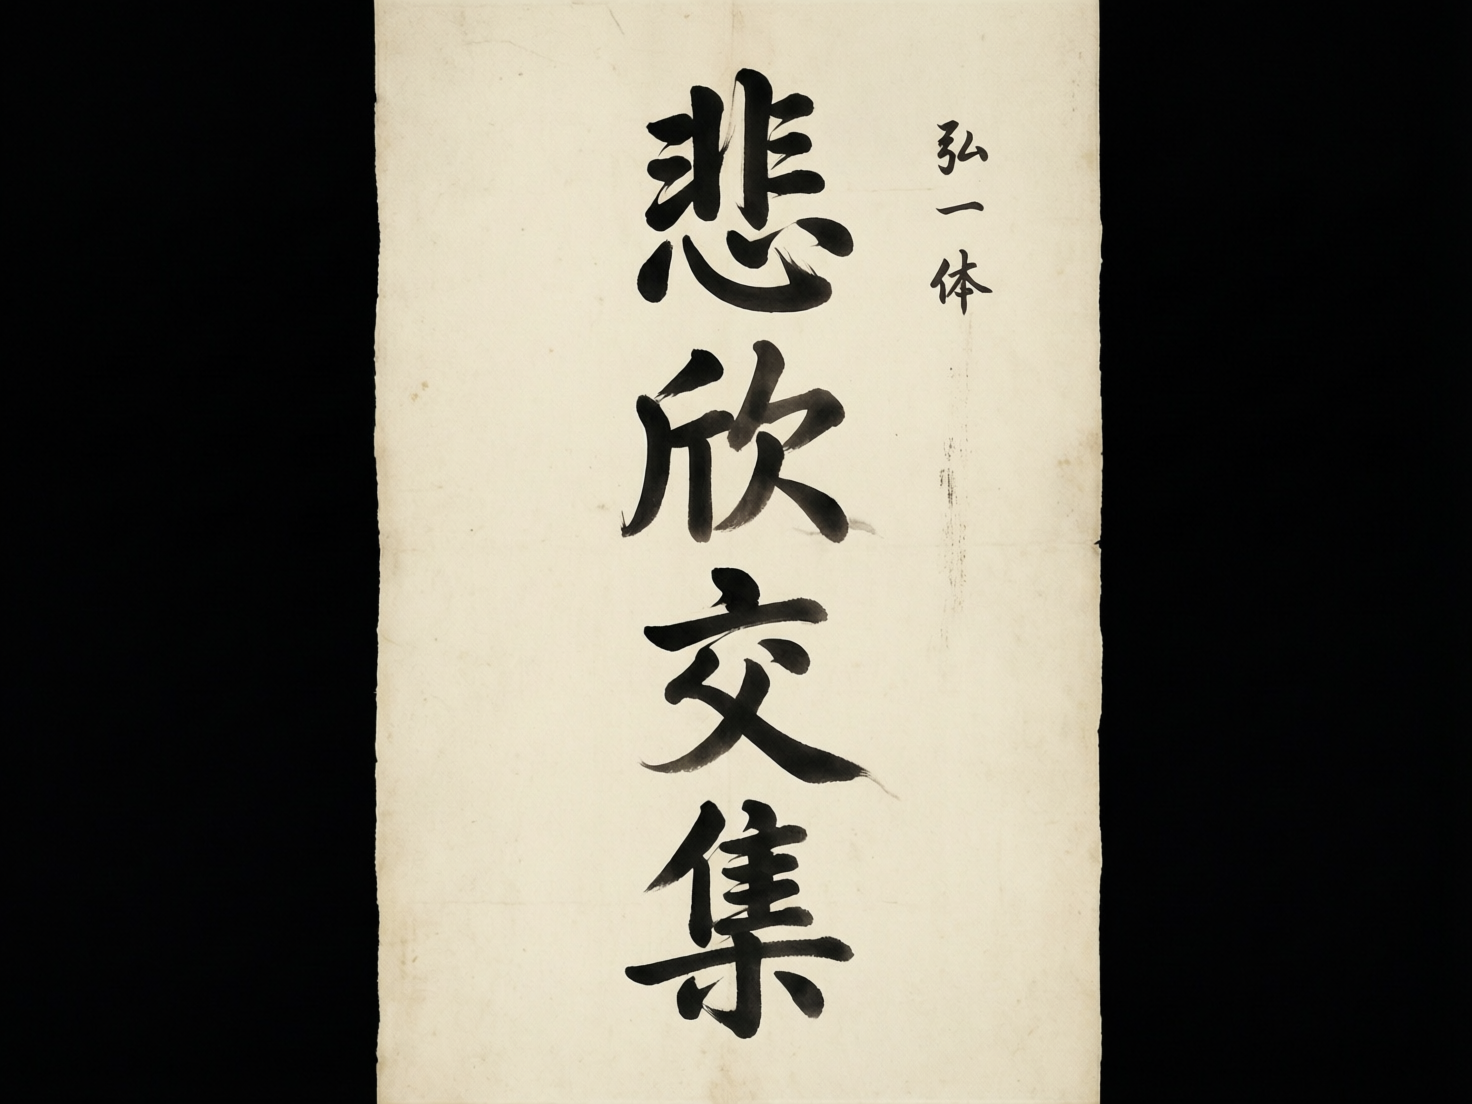 弘一体
悲欣交集